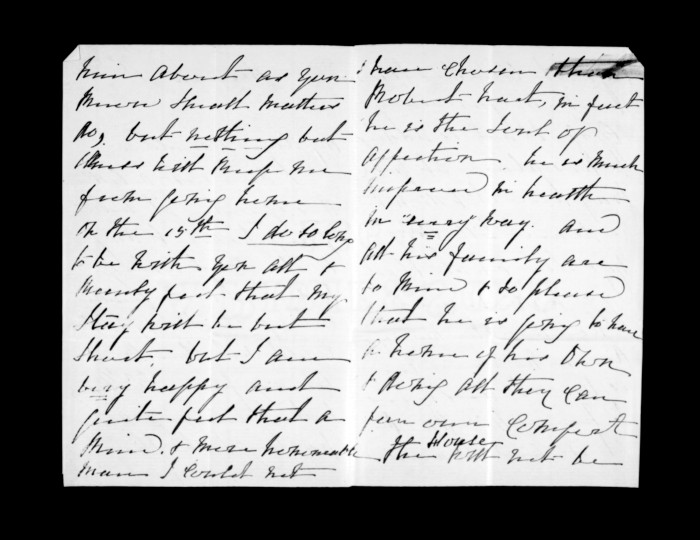 him about as you
know small matters
do, but nothing but
illness will keep me
from going home
on the 15th I do so long
to be with you all &
merely feel that my
stay will be but
short, but I am
very happy and
quite feel that a
kind & more honourable
man I could not
have chosen than
Robert Hart, in fact
he is the soul of
affection he is much
improved in health
in every way. and
all his family are
so kind & so pleased
that he is going to have
a home of his own
& doing all they can
for our comfort
the House will not be